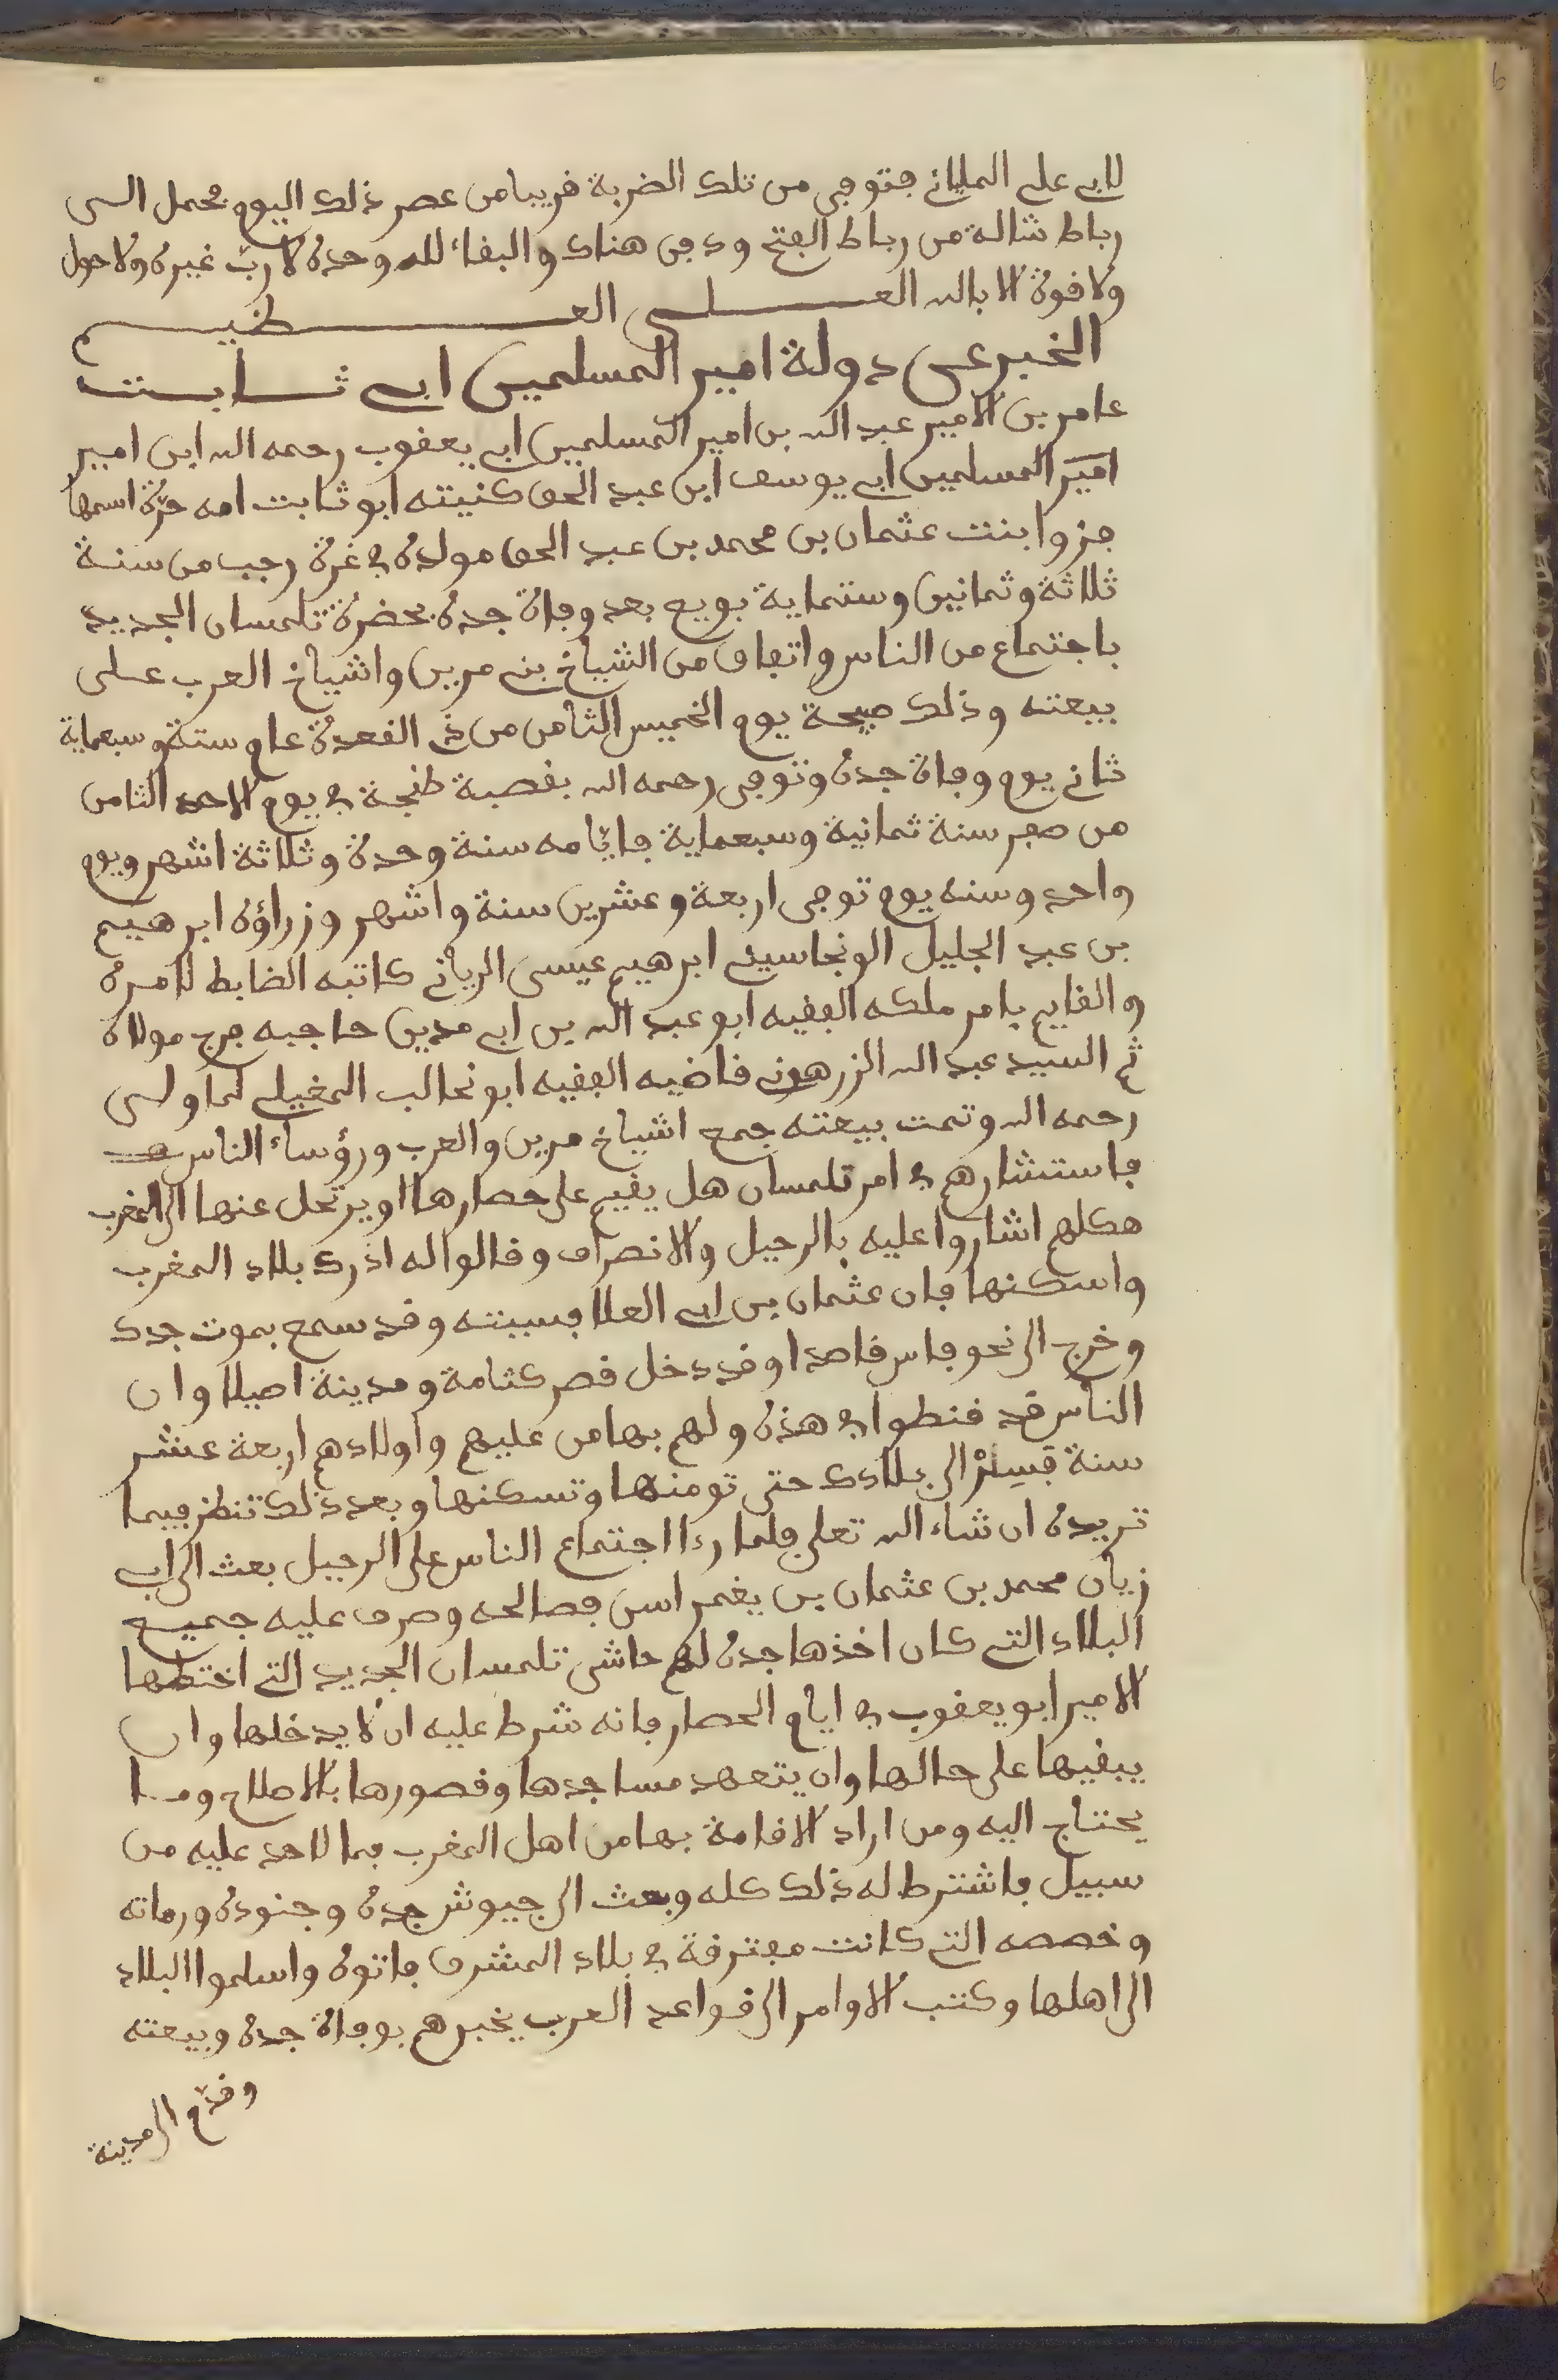 لابي علي الملياني فتوفي من تلك الضربة قريبا من عصر ذلك اليوم فحمل الى
رباط شالة من رباط الفتح ودفن هناك والبقاء لله وحده لا رب غيره ولا حول
ولا قوة الا بالله العلي العظيم
الخبر عن دولة امير المسلمين ابي ثابت
عامر بن الامير عبد الله بن امير المسلمين ابي يعقوب رحمه الله ابن امير
امير المسلمين ابي يوسف ابن عبد الحق كنيته ابو ثابت امه حرة اسمها
جزوا بنت عثمان بن محمد بن عبد الحق مولده في غرة رجب من سنة
ثلاثة وثمانين وستماية بويع بعد وفاة جده بحضرة تلمسان الجديد
باجتماع من الناس واتفاق من الشياخ بني مرين واشياخ العرب على
بيعته وذلك صبيحة يوم الخميس الثامن من ذي القعدة عام ستة وسبعماية
ثاني يوم وفاة جده وتوفي رحمه الله بقصبة طنجة في يوم الاحد الثامن
من صفر سنة ثمانية وسبعماية فايامه سنة وحدة وثلاثة اشهر ويوم
واحد وسنه يوم توفي اربعة وعشرين سنة واشهر وزراؤه ابرهيم
بن عبد الجليل الونجاسيني ابرهيم عيسى اليرياني كاتبه الضابط لامره
والقايم بامر ملكه الفقيه ابو عبد الله بن ابي مدين حاجبه فرج مولاه
ثم السيد عبد الله الزرهوني قاضيه الفقيه ابو غالب المغيلي لما ولى
رحمه الله وتمت بيعته جمع اشياخ مرين والعرب ورؤساء الناس
فاستشارهم في امر تلمسان هل يقيم على حصارها او يرتحل عنها الى المغرب
فكلهم اشاروا عليه بالرحيل والانصراف وقالوا له ادرك بلاد المغرب
واسكنها فان عثمان بن ابي العلا بسبتة وقد سمع بموت جدك
وخرج الى نحو فاس قاصدا وقد دخل قصر كتامة ومدينة اصيلا وان
الناس قد قنطوا في هذه ولهم بها من عليهم واولادهم اربعة عشر
سنة فسر الى بلادك حتى تومنها وتسكنها وبعد ذلك تنظر فيما
تريده ان شاء الله تعلى فلما رءا اجتماع الناس على الرحيل بعث الى ابي
زيان محمد بن عثمان بن يغمراسن فصالحه وصرف عليه جميع
البلاد التي كان اخذها جده لهم حاشى تلمسان الجديد التي اختطها
الامير ابو يعقوب في ايام الحصار فانه شرط عليه ان لا يدخلها وان
يبقيها على حالها وان يتعهد مساجدها وقصورها بالاصلاح وما
يحتاج اليه ومن اراد الاقامة بها من اهل المغرب فما لاحد عليه من
سبيل فاشترط له ذلك كله وبعث الى جيوش جده وجنوده ورماته
وخصصه التي كانت مفترقة في بلاد المشرق فاتوه واسلموا البلاد
الى اهلها وكتب الاوامر الى قواعد العرب يخبرهم بوفاة جده وبيعته
وقدم الى مدينة